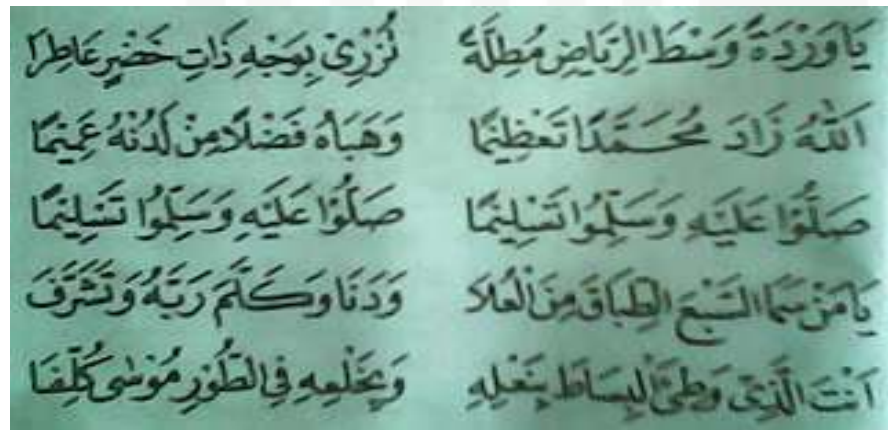 يَاوَرْدَةً وَسْطَ الرِّيَاضِ مُطِلَّةً تُزْرِيْ بِوَجْهِ ذَاتِ خَضْرٍ عَاطِرَا
اَللهُ زَادَ مُحَمَّدًا تَعْظِيْمًا وَهَبَاهُ فَضْلًا مِنْ لَدُنْهُ عَمِيْمًا
صَلُّوْا عَلَيْهِ وَسَلِّمُوْا تَسْلِيْمًا صَلُّوْا عَلَيْهِ وَسَلِّمُوْا تَسْلِيْمًا
يَامَنْ سَمَا السَّبْعَ الطِّبَاقَ مِنَ الْعُلَا وَدَنَا وَكَلَّمَ رَبَّهُ وَتَشَرَّفَ
اَنْتَ الَّذِيْ وَطِئَ الْبِسَاطَ بِنَعْلِهِ وَبِخَلْعِهِ فِي الطُّوْرِ مُوْسٰى كُلِّفَا